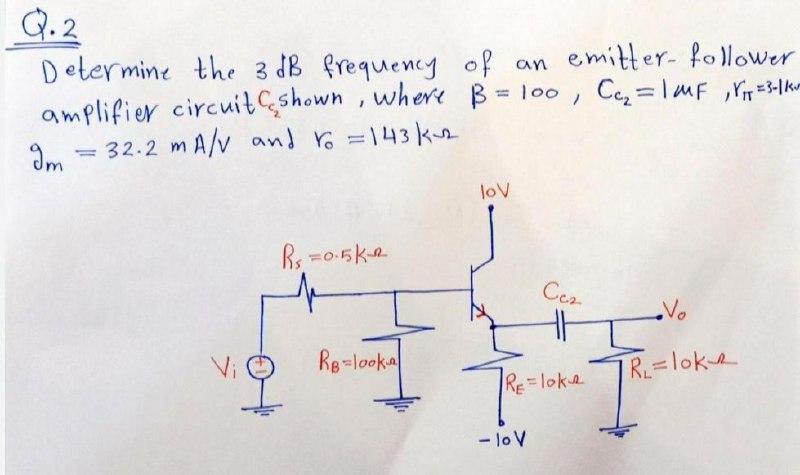 Q.2
Determine the 3 dB frequency of an emitter-follower
amplifier circuit Cc2 shown, where β = 100, Cc2 = 1 μF, rπ = 3.1kΩ
gm = 32.2 mA/V and ro = 143 kΩ
10V
Rs = 0.5kΩ
Cc2
Vo
Vi
RB = 100kΩ
RE = 10kΩ
RL = 10kΩ
-10V